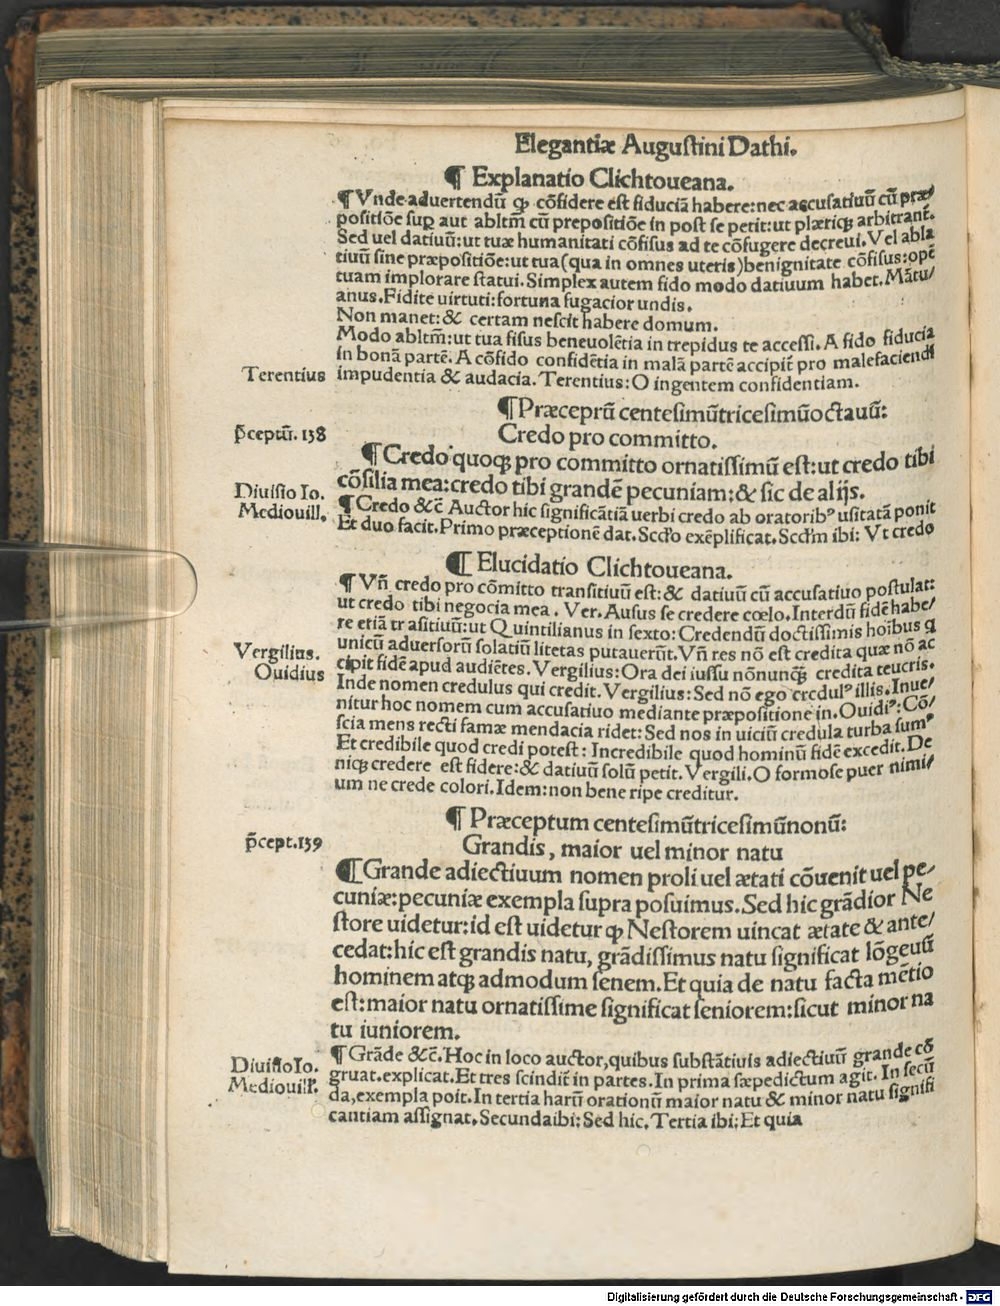 Elegantiæ Augustini Dathi.
¶ Explanatio Clichtoueana.
¶ Vnde aduertendū ꝙ cōfidere est fiduciā habere: nec accusatiuū cū præ/
positiōe suꝑ aut abltm̄ cū prepositiōe in post se petit: ut plæriqꝫ arbitrant̄.
Sed uel datiuū: ut tuæ humanitati cōfisus ad te cōfugere decreui. Vel abla
tiuū sine præpositiōe: ut tua (qua in omnes uteris) benignitate cōfisus: opē
tuam implorare statui. Simplex autem fido modo datiuum habet. Mātu/
anus. Fidite uirtuti: fortuna fugacior undis.
Non manet: & certam nescit habere domum.
Modo abltm̄: ut tua fisus beneuolētia intrepidus te accessi. A fido fiducia
in bonā partē. A cōfido confidētia in malā partē accipit̄ pro malefaciendi
Terentius
impudentia & audacia. Terentius: O ingentem confidentiam.
¶ Præceprū centesimūtricesimūoctauū:
p̄ceptū. 138
Credo pro committo.
¶ Credo quoqꝫ pro committo ornatissimū est: ut credo tibi
cōsilia mea: credo tibi grandē pecuniam: & sic de alijs.
Diuisio Io.
Mediouill.
¶ Credo &c̄ Auctor hic significātiā uerbi credo ab oratoribꝰ usitatā ponit
Et duo facit. Primo præceptionē dat. Scd'o exēplificat. Scd'm ibi: Vt credo
¶ Elucidatio Clichtoueana.
¶ Vn̄ credo pro cōmitto transitiuū est: & datiuū cū accusatiuo postulat:
ut credo tibi negocia mea. Ver. Ausus se credere cœlo. Interdū fidē habe/
re etiā trasitiuū: ut Quintilianus in sexto: Credendū doctissimis hoībus q
unicū aduersorū solatiū litetas putauerūt. Vn̄ res nō est credita quæ nō ac
Vergilius.
cipit fidē apud audiētes. Vergilius: Ora dei iussu nōnunqꝫ̄ credita teucris.
Ouidius
Inde nomen credulus qui credit. Vergilius: Sed nō ego credulꝰ illis. Inue/
nitur hoc nomem cum accusatiuo mediante præpositione in. Ouidiꝰ: Cō/
scia mens recti famæ mendacia ridet: Sed nos in uiciū credula turba sumꝰ
Et credibile quod credi potest: Incredibile quod hominū fidē excedit. De
niqꝫ credere est fidere: & datiuū solū petit. Vergili. O formose puer nimi/
um ne crede colori. Idem: non bene ripe creditur.
¶ Præceptum centesimūtricesimūnonū:
p̄cept. 139
Grandis, maior uel minor natu
¶ Grande adiectiuum nomen proli uel ætati cōuenit uel pe/
cuniæ: pecuniæ exempla supra posuimus. Sed hic grādior Ne
store uidetur: id est uidetur ꝙ Nestorem uincat ætate & ante/
cedat: hic est grandis natu, grādissimus natu significat lōgeuū
hominem atqꝫ admodum senem. Et quia de natu facta mētio
est: maior natu ornatissime significat seniorem: sicut minor na
tu iuniorem.
Diuisio Io.
Mediouill.
¶ Grāde &c̄. Hoc in loco auctor, quibus substātiuis adiectiuū grande cō
gruat. explicat. Et tres scindit̄ in partes. In prima sæpedictum agit. In secū
da, exempla poit. In tertia harū orationū maior natu & minor natu signifi
cantiam assignat. Secunda ibi: Sed hic. Tertia ibi: Et quia
Digitalisierung gefördert durch die Deutsche Forschungsgemeinschaft - DFG